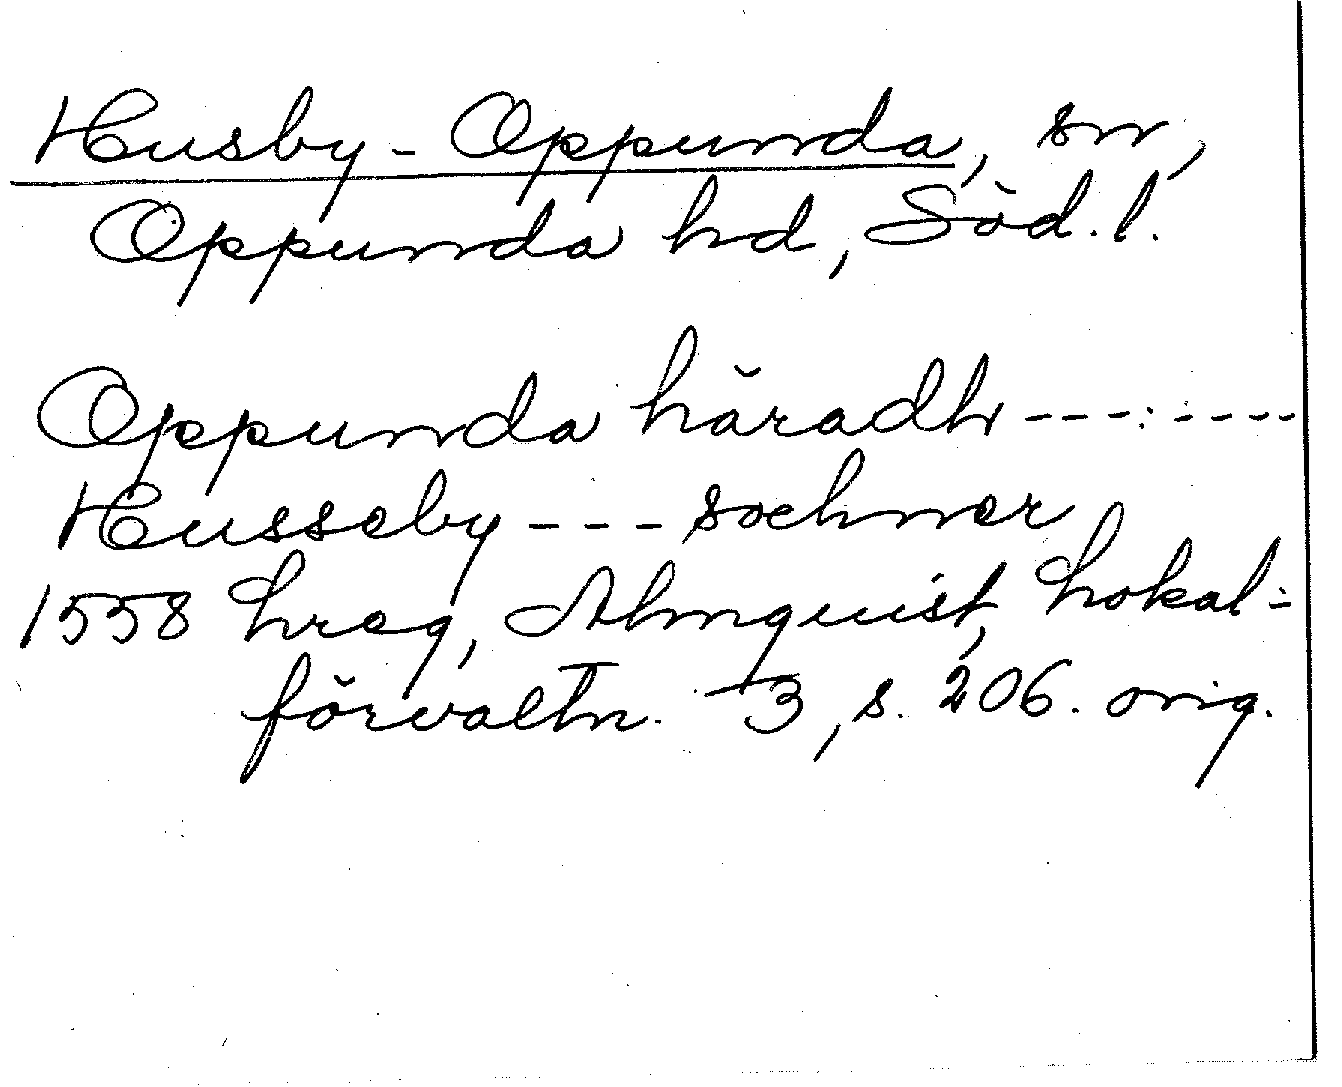 Husby-Oppunda, sn,
Oppunda hd, Söd.l.
Oppunda häradh ---:----
Husseby --- sochner
1558 hreg, Almquist, Lokal-
förvaltn. 3, s. 206. orig.